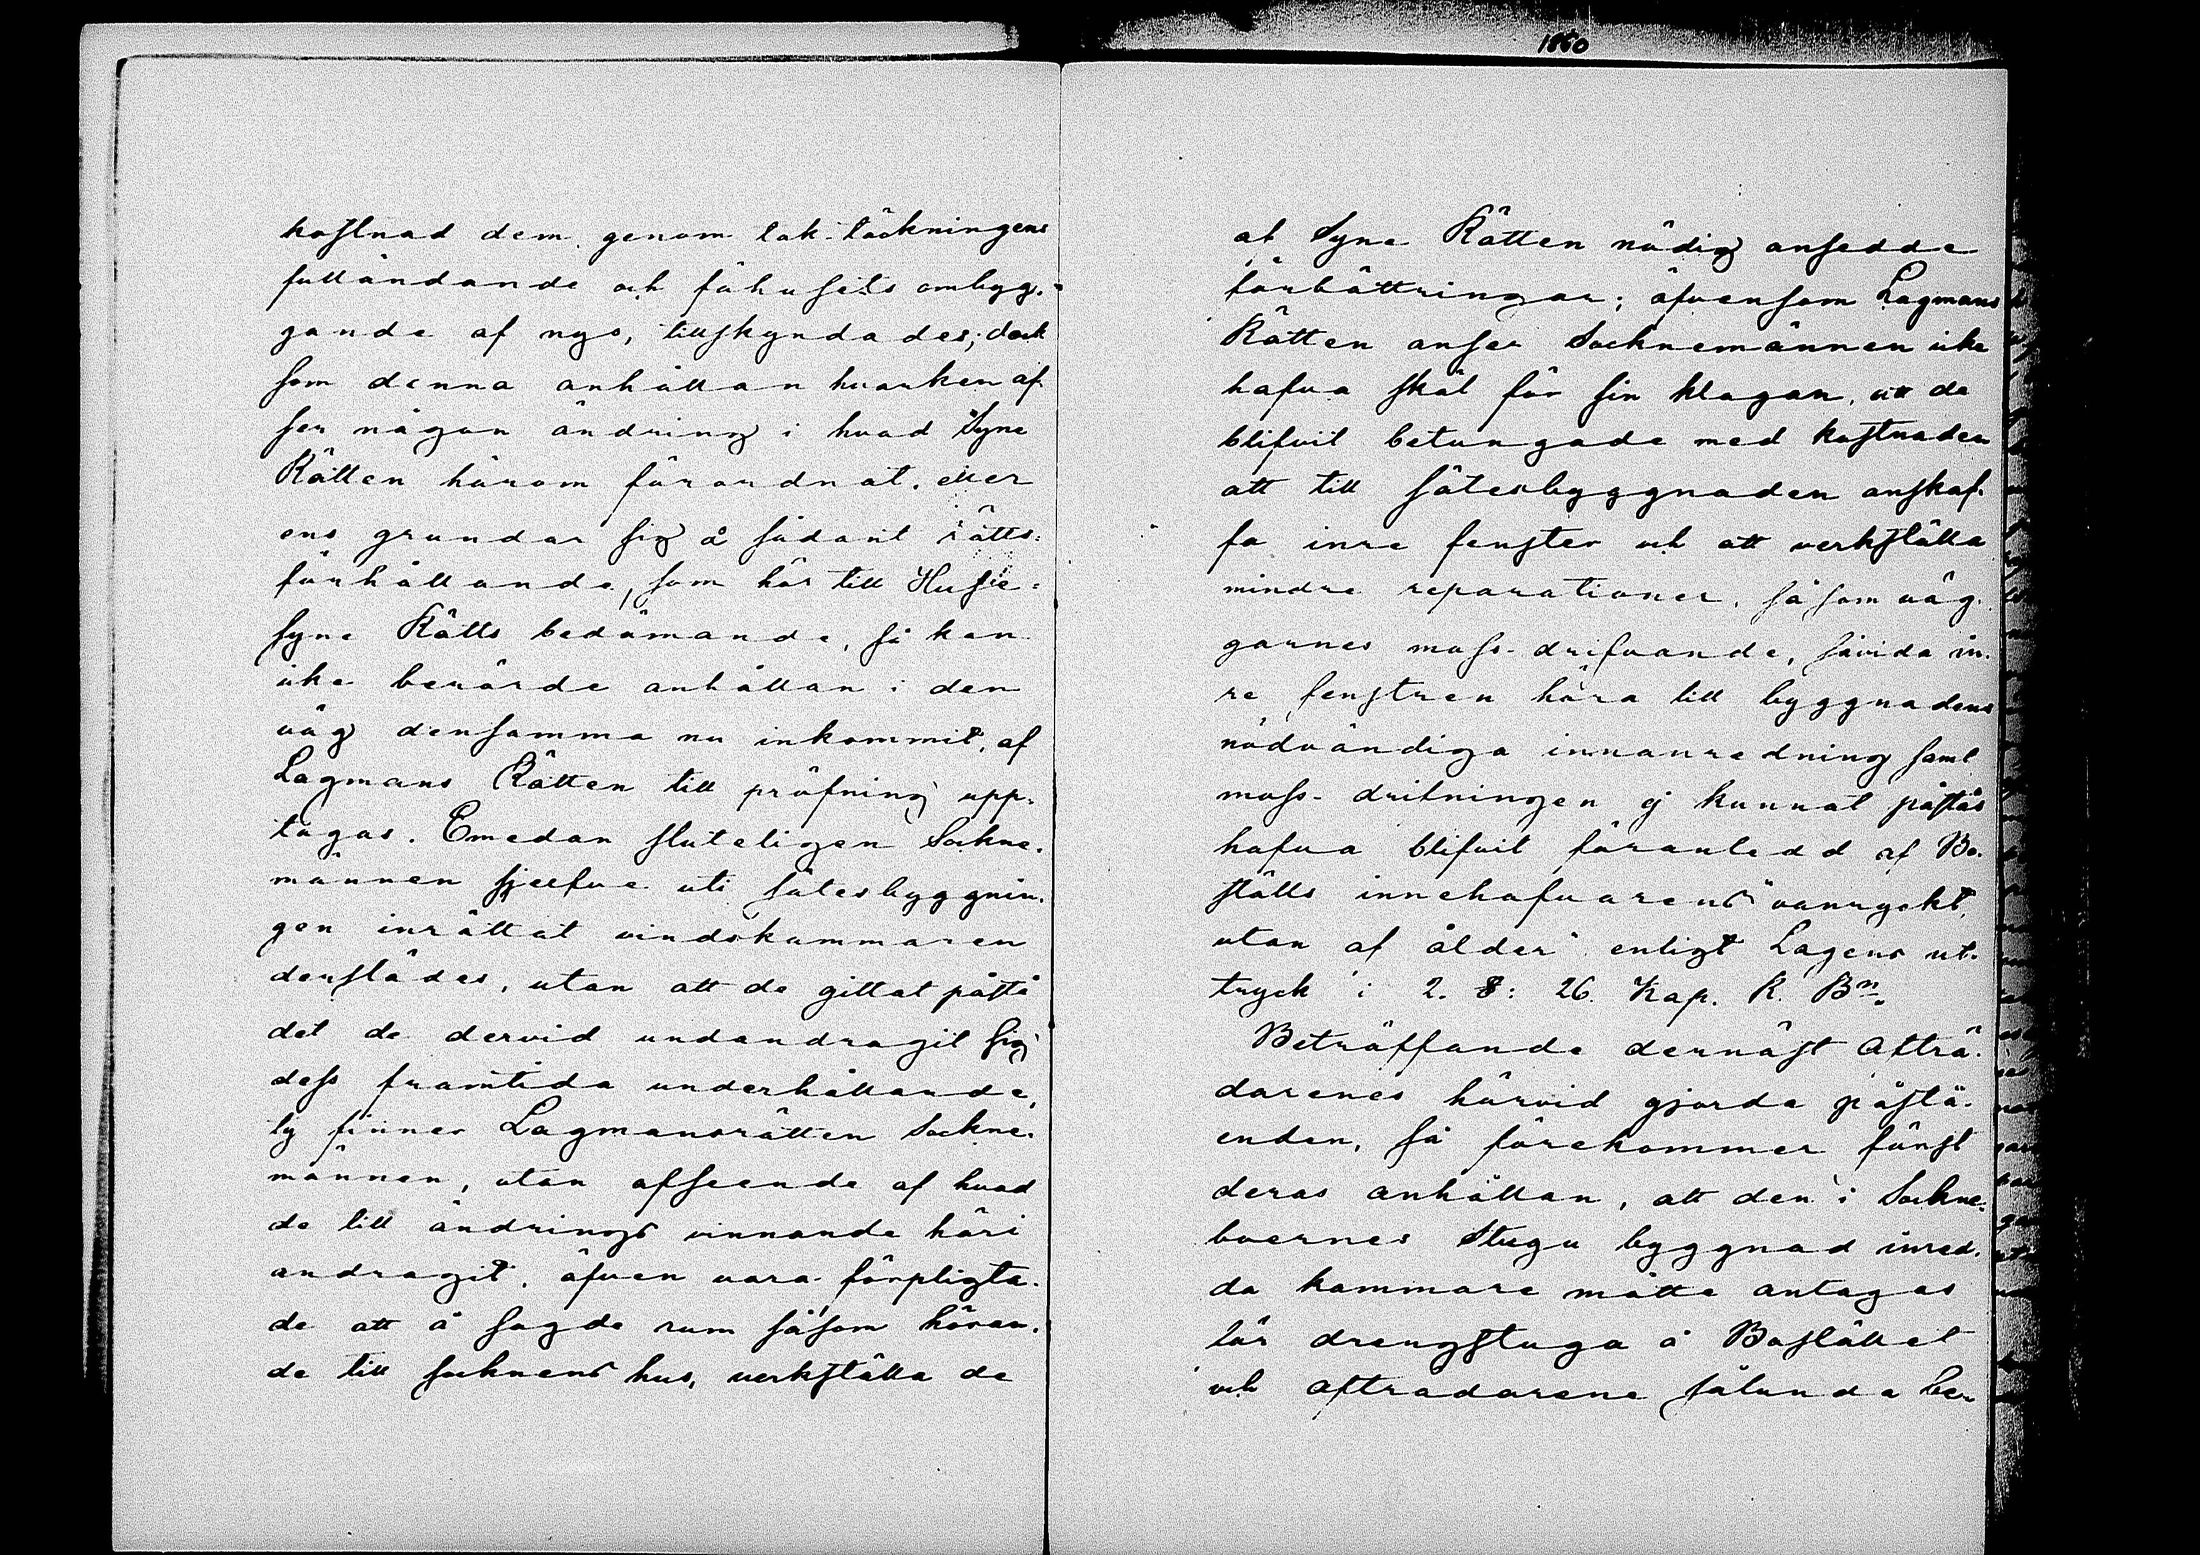 1860
kostnad dem genom tak-täckningens
fulländande och fähusets ombyg-
gande af nyo, tillskyndades; dock
som denna anhållan hvarken af-
ser någon ändring i hvad Syne
Rätten härom förordnat, eller
ens grundar sig å sådant rätts-
förhållande, som hör till Huse-
syne Rätts bedömande, så kan
icke berörde anhållan i den
väg densamma nu inkommit, af
Lagmans Rätten till pröfning upp-
tagas. Emedan sluteligen Sockne-
männen sjelfve uti sätesbyggnin-
gen inrättat vindskammaren
derstädes, utan att de gittat påstå
det de dervid undandragit sig
dess framtida underhållande,
ty finner Lagmansrätten Sockne-
männen, utan afseende af hvad
de till ändrings vinnande häri
andragit, äfven vara förpligta-
de att å sagde rum såsom höran-
de till socknens hus, verkställa de
af Syne Rätten nödig ansedde
förbättringar; äfvensom Lagmans
Rätten anser Socknemännen icke
hafva skäl för sin klagan, att de
blifvit betungade med kostnaden
att till sätesbyggnaden anskaf-
fa inre fenster och att verkställa
mindre reparationer, såsom väg-
garnes moss-drifvande, såvida in-
re fenstren höra till byggnadens
nödvändiga innanredning samt
moss-drifningen ej kunnat påstås
hafva blifvit föranledd af Bo-
ställs innehafvarens vanryckt,
utan af ålder enligt Lagens ut-
tryck i 2. §: 26. Kap. B. Bn
Beträffande dernäst Afträ-
darenes härvid gjorde påstå-
enden, så förekommer först
deras anhållan, att den i Sockne-
boernes Stugu byggnad inred-
da kammare måtte antagas
för drengstuga å Bostället
och afträdarene sålunda be-